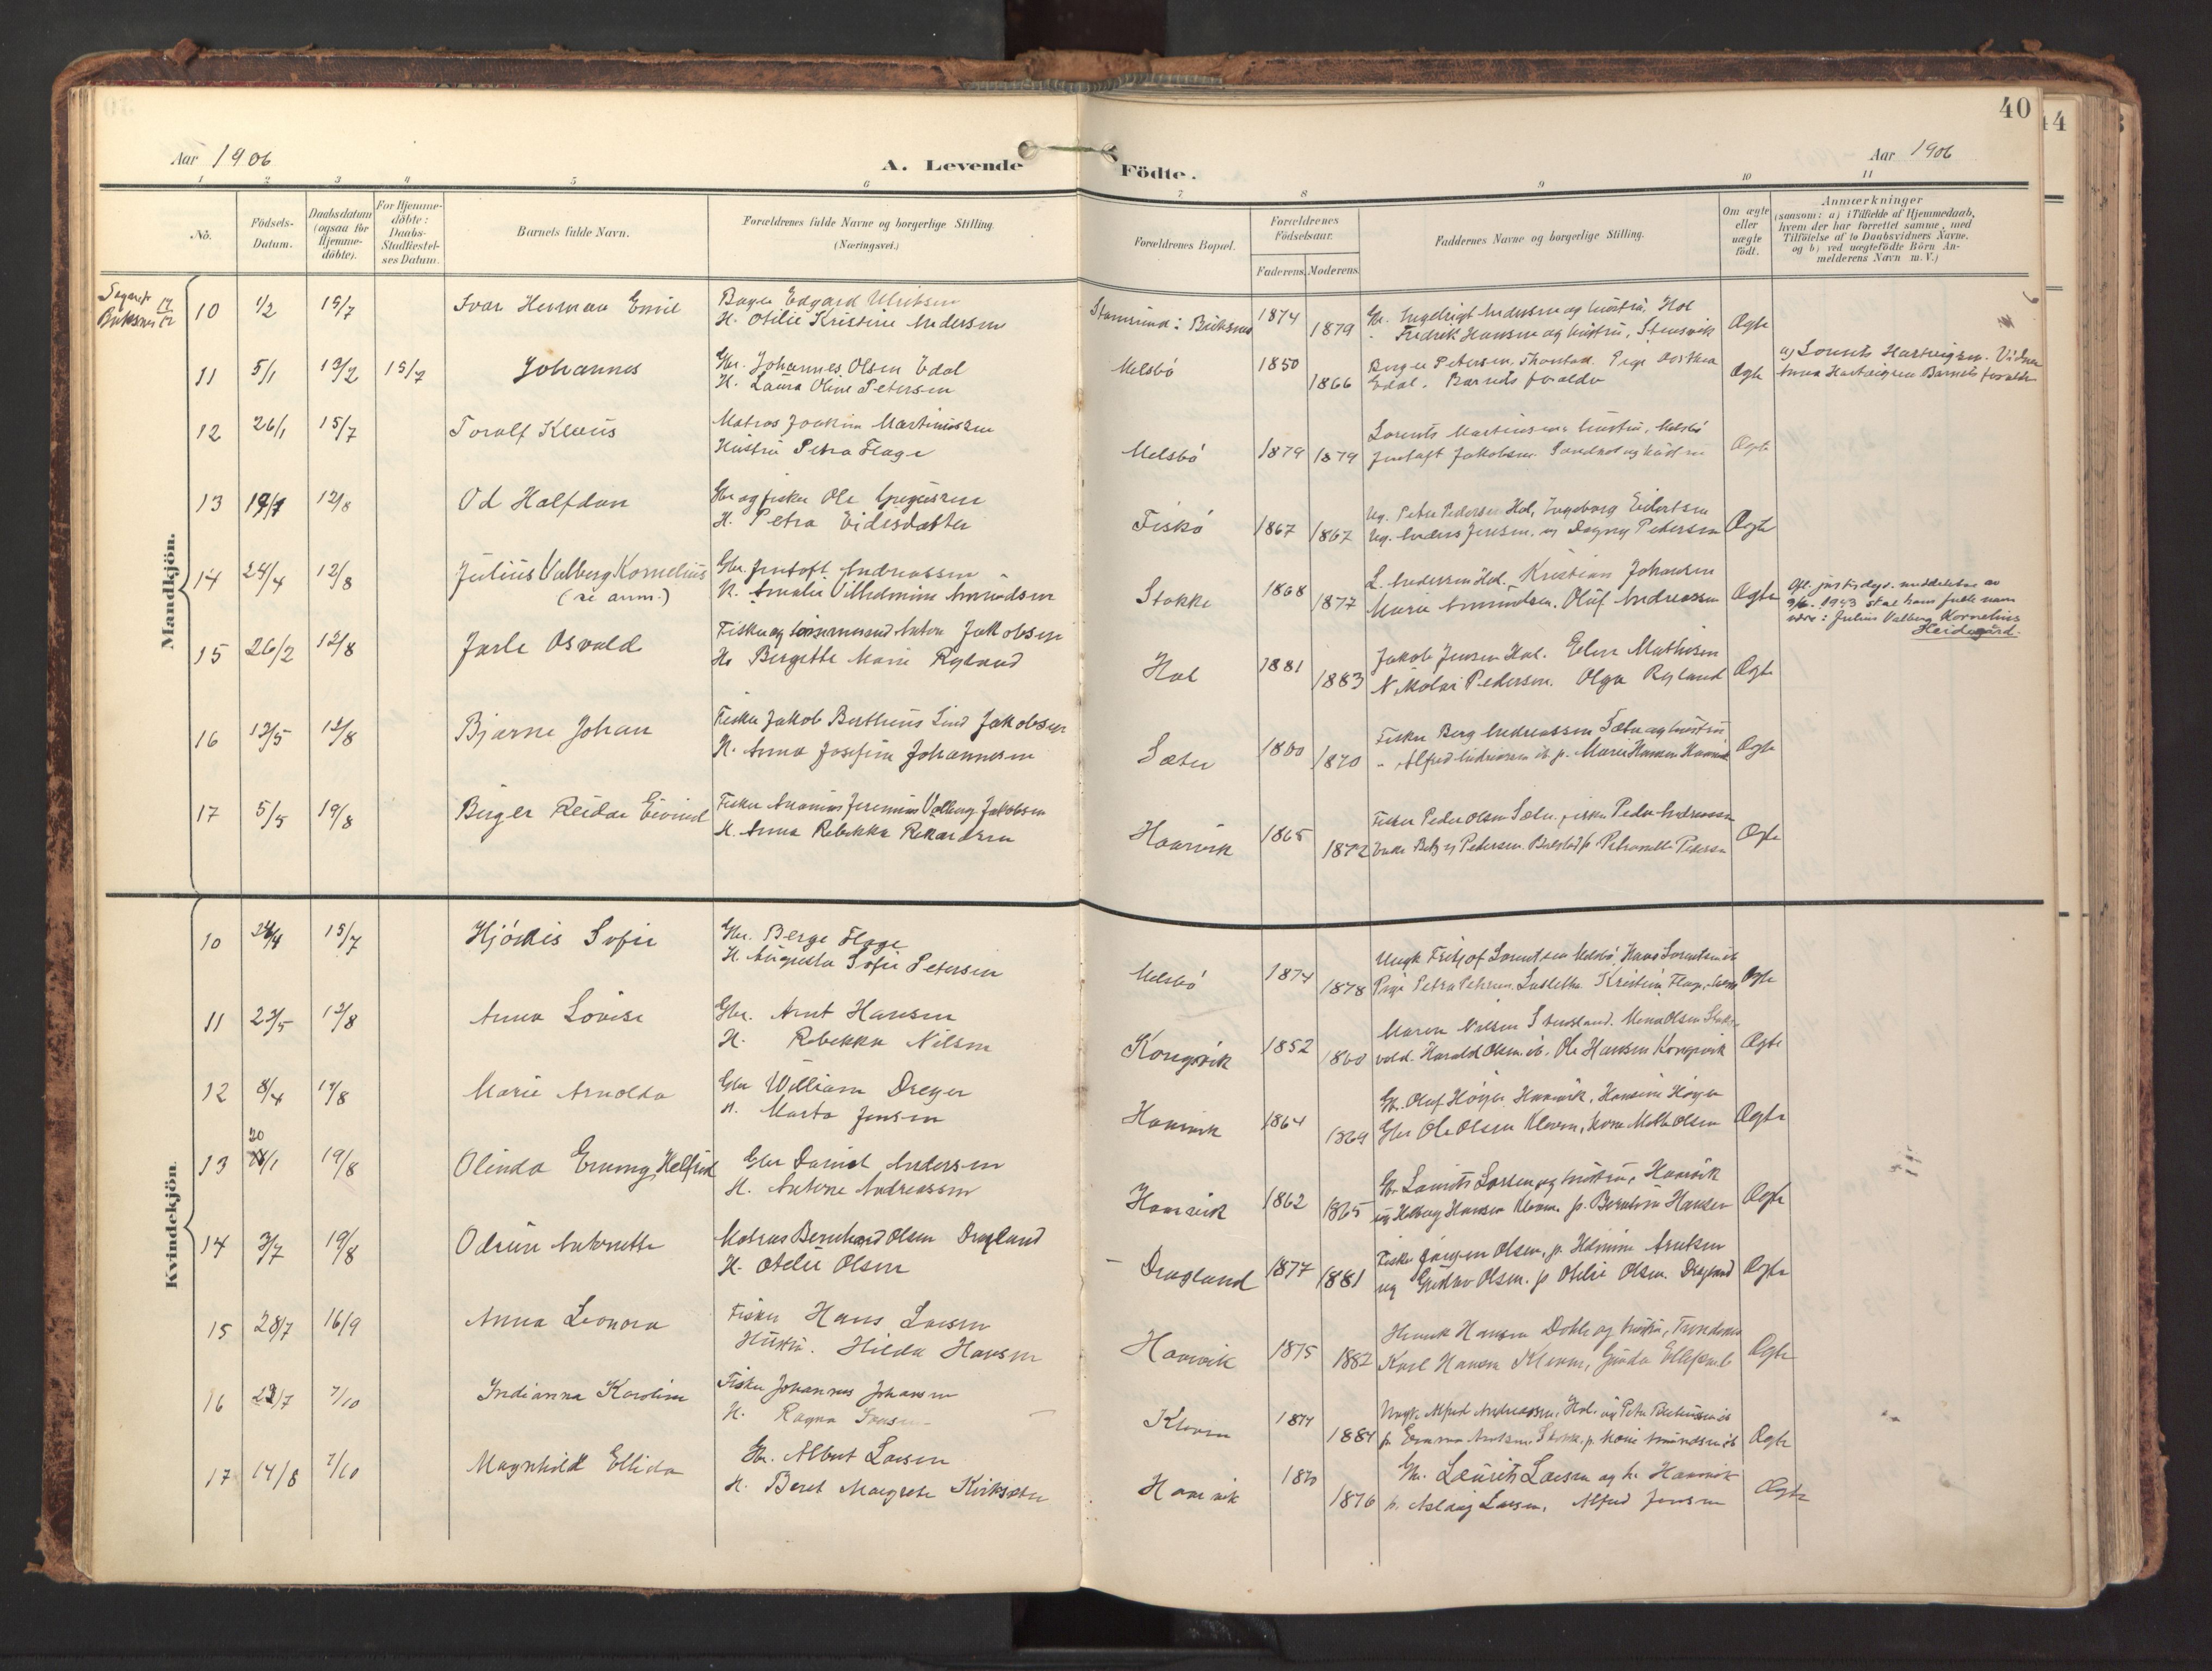 40
44
Aar 1906
A. Levende
Födte.
Aar 1906
1 2 3 4 5 6 7 8 9 10 11
No.
Födsels-
Datum.
Daabsdatum
(ogsaa for
Hjemme-
döbte).
For Hjemme-
döbte:
Daabs-
Stadfæstel-
ses Datum.
Barnets fulde Navn.
Forældrenes fulde Navne og borgerlige Stilling.
(Næringsvei.)
Forældrenes Bopæl.
Forældrenes
Födselsaar.
Faderens. Moderens.
Faddernes Navne og borgerlige Stilling.
Om ægte
eller
uægte
födt.
Anmærkninger
(saasom: a) i Tilfælde af Hjemmedaab,
hvem der har forrettet samme, med
Tilföielse af to Daabsvidners Navne.
og b) ved uægtefödte Börn An-
melderens Navn m. V.)
Mandkjön.
Buksnes
10 1/2 15/7 Ivar Herman Emil
Edgard Ulriksen
H. Otilie Kristine Andersen
Stamsund i Buksnes 1874 1879
Gbr. Ingebrigt Andersen og hustru, Hol
Fredrik Hansen og hustru, Stensvik
Ægte
11 5/1 13/2 15/7 Johannes
Gbr. Johannes Olsen Edal
H. Laura Oline Petersen
Melsbö 1850 1866
Berger Petersen
Edal. Barnets forældre
Ægte
a) Lorents Hartvigsen. Vidner
Anna Hartvigsen Barnets forældre
12 26/1 15/7 Toralf Klaus
Matros Joakim Martinussen
Hustru Petra Flage
Melsbö 1879 1879
Lorents Martinsen hustru, Melsbö
Jentoft Jakobsen Sandnes og hustru
Ægte
13 19/7 12/8 Od Halfdan
Gbr og fisker Ole Gregussen
H. Petra Eidesdatter
Fiskö 1867 1867
Ug. Peter Pedersen Hol, Ingeborg Eidertsen
Ug. Anders Jensen, og Dagny Pedersen
Ægte
14 24/4 12/8 Julius Valberg Kornelius
(se anm.)
Gbr. Jentoft Andreassen
H. Amalie Vilhelmine Amundsen
Stokke 1868 1877
L. Andersen Hol. Kristian Johansen
Marie Amundsen. Oluf Andreassen
Ægte
Ifl. justisdep. meddelelse av
9/6. 1943 skal hans fulle navn
være: Julius Valberg Kornelius
Heidegård.
15 26/2 12/8 Jarle Osvald
Fisker og Anton Jakobsen
H. Bergitte Marie Ryland
Hol 1881 1883
Jakob Jensen Hol. Elen Mathisen
Nikolai Pedersen. Olga Ryland
Ægte
16 13/5 12/8 Bjarne Johan
Fisker Jakob Berthinus Lind Jakobsen
H. Anna Josefine Johannesen
Sæter 1860 1870
Fisker Berg Andreassen Sæter og hustru
Alfred Andreassen ib p. Marie Hansen
Ægte
17 5/5 19/8 Birger Reidar Eivind
Fisker Ananias Jeremias Valberg Jakobsen
H. Anna Rebekka Rikardsen
Haarvik 1865 1872
Fisker Peder Olsen Sæter. fisker Peder Andreassen
Pedersen. p. Petronelle Pedersen
Ægte
Kvindekjön.
10 24/4 15/7 Hjördis Sofie
Gbr. Berge Flage
H. Augusta Sofie Petersen
Melsbö 1874 1878
Ungk Fritjof Lorentsen Melsbö, Hans Lorentsen ib
Pige Petra Petersen. Kristine Flage
Ægte
11 23/5 12/8 Anna Lovise
Gbr. Arnt Hansen
H. Rebekka Nilsen
Kongsvik 1852 1860
Maren Nilsen Mena Olsen
Harald Olsen ib. Ole Hansen Kongsvik
Ægte
12 8/4 19/8 Marie Arnolda
Gbr William Dreyer
H. Marta Jensen
Haarvik 1864 1869
Gbr. Olaf Höyer Haarvik, Hansine Höyer
Gbr Ole Olsen Kloven, kone Mette Olsen
Ægte
13 20/1 19/8 Olinda Emmy Helfrid
Gbr Daniel Andersen
H. Antone Andreassen
Haarvik 1862 1865
Gbr Laurits Larsen og hustru, Haarvik
ug Helberg Hansen Kloven. p. Bernhoffine Hansen
Ægte
14 3/7 19/8 Odrun Antonette
Matros Bernhard Olsen Dragland
H. Otelie Olsen
Dragland 1877 1881
Fisker Jörgen Olsen, p. Helmine Arntsen
ug Gustav Olsen. p Otilie Olsen. Dragland
Ægte
15 28/7 16/9 Anna Leonora
Fisker Hans Larsen
Hustru. Hilda Hansen
Haarvik 1875 1882
Henrik Hansen og hustru, Trondenes
Karl Hansen Kloven, Gunda Ellefsen
Ægte
16 23/7 7/10 Indianna Karoline
Fisker Johannes Johansen
H. Ragna
Kloven 1874 1884
Ungk. Alfred Andreassen, Hol. og Peter
p. Emma Arntsen, Stokke, p. Marie Amundsen ib
Ægte
17 14/8 7/10 Magnhild Ellida
Gbr. Albert Larsen
H. Beret Margrete Kirksæter
Haarvik 1870 1876
Gbr. Laurits Larsen og h. Haarvik
p. Aslaug Larsen, Alfred Jensen
Ægte